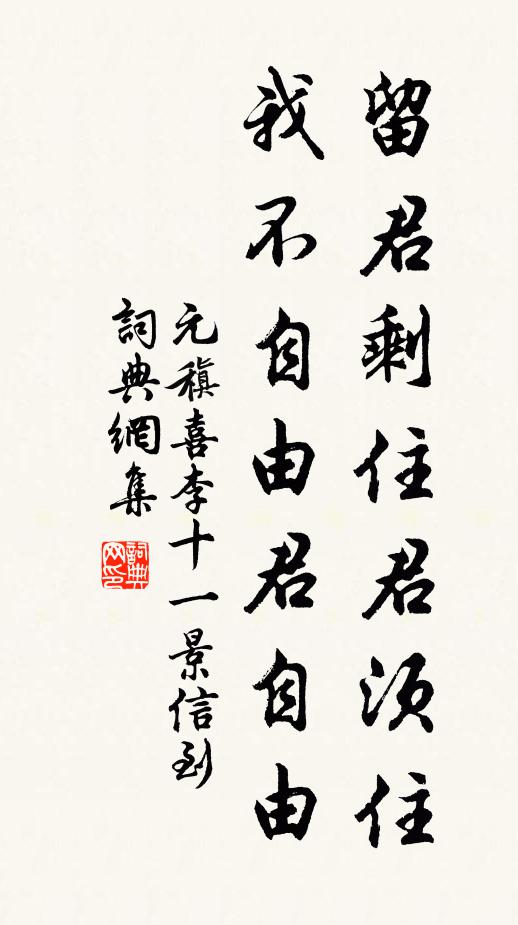 留君剩住君須住
我不自由君自由
元稹喜李十一景信到
詞典網集
詞典网印